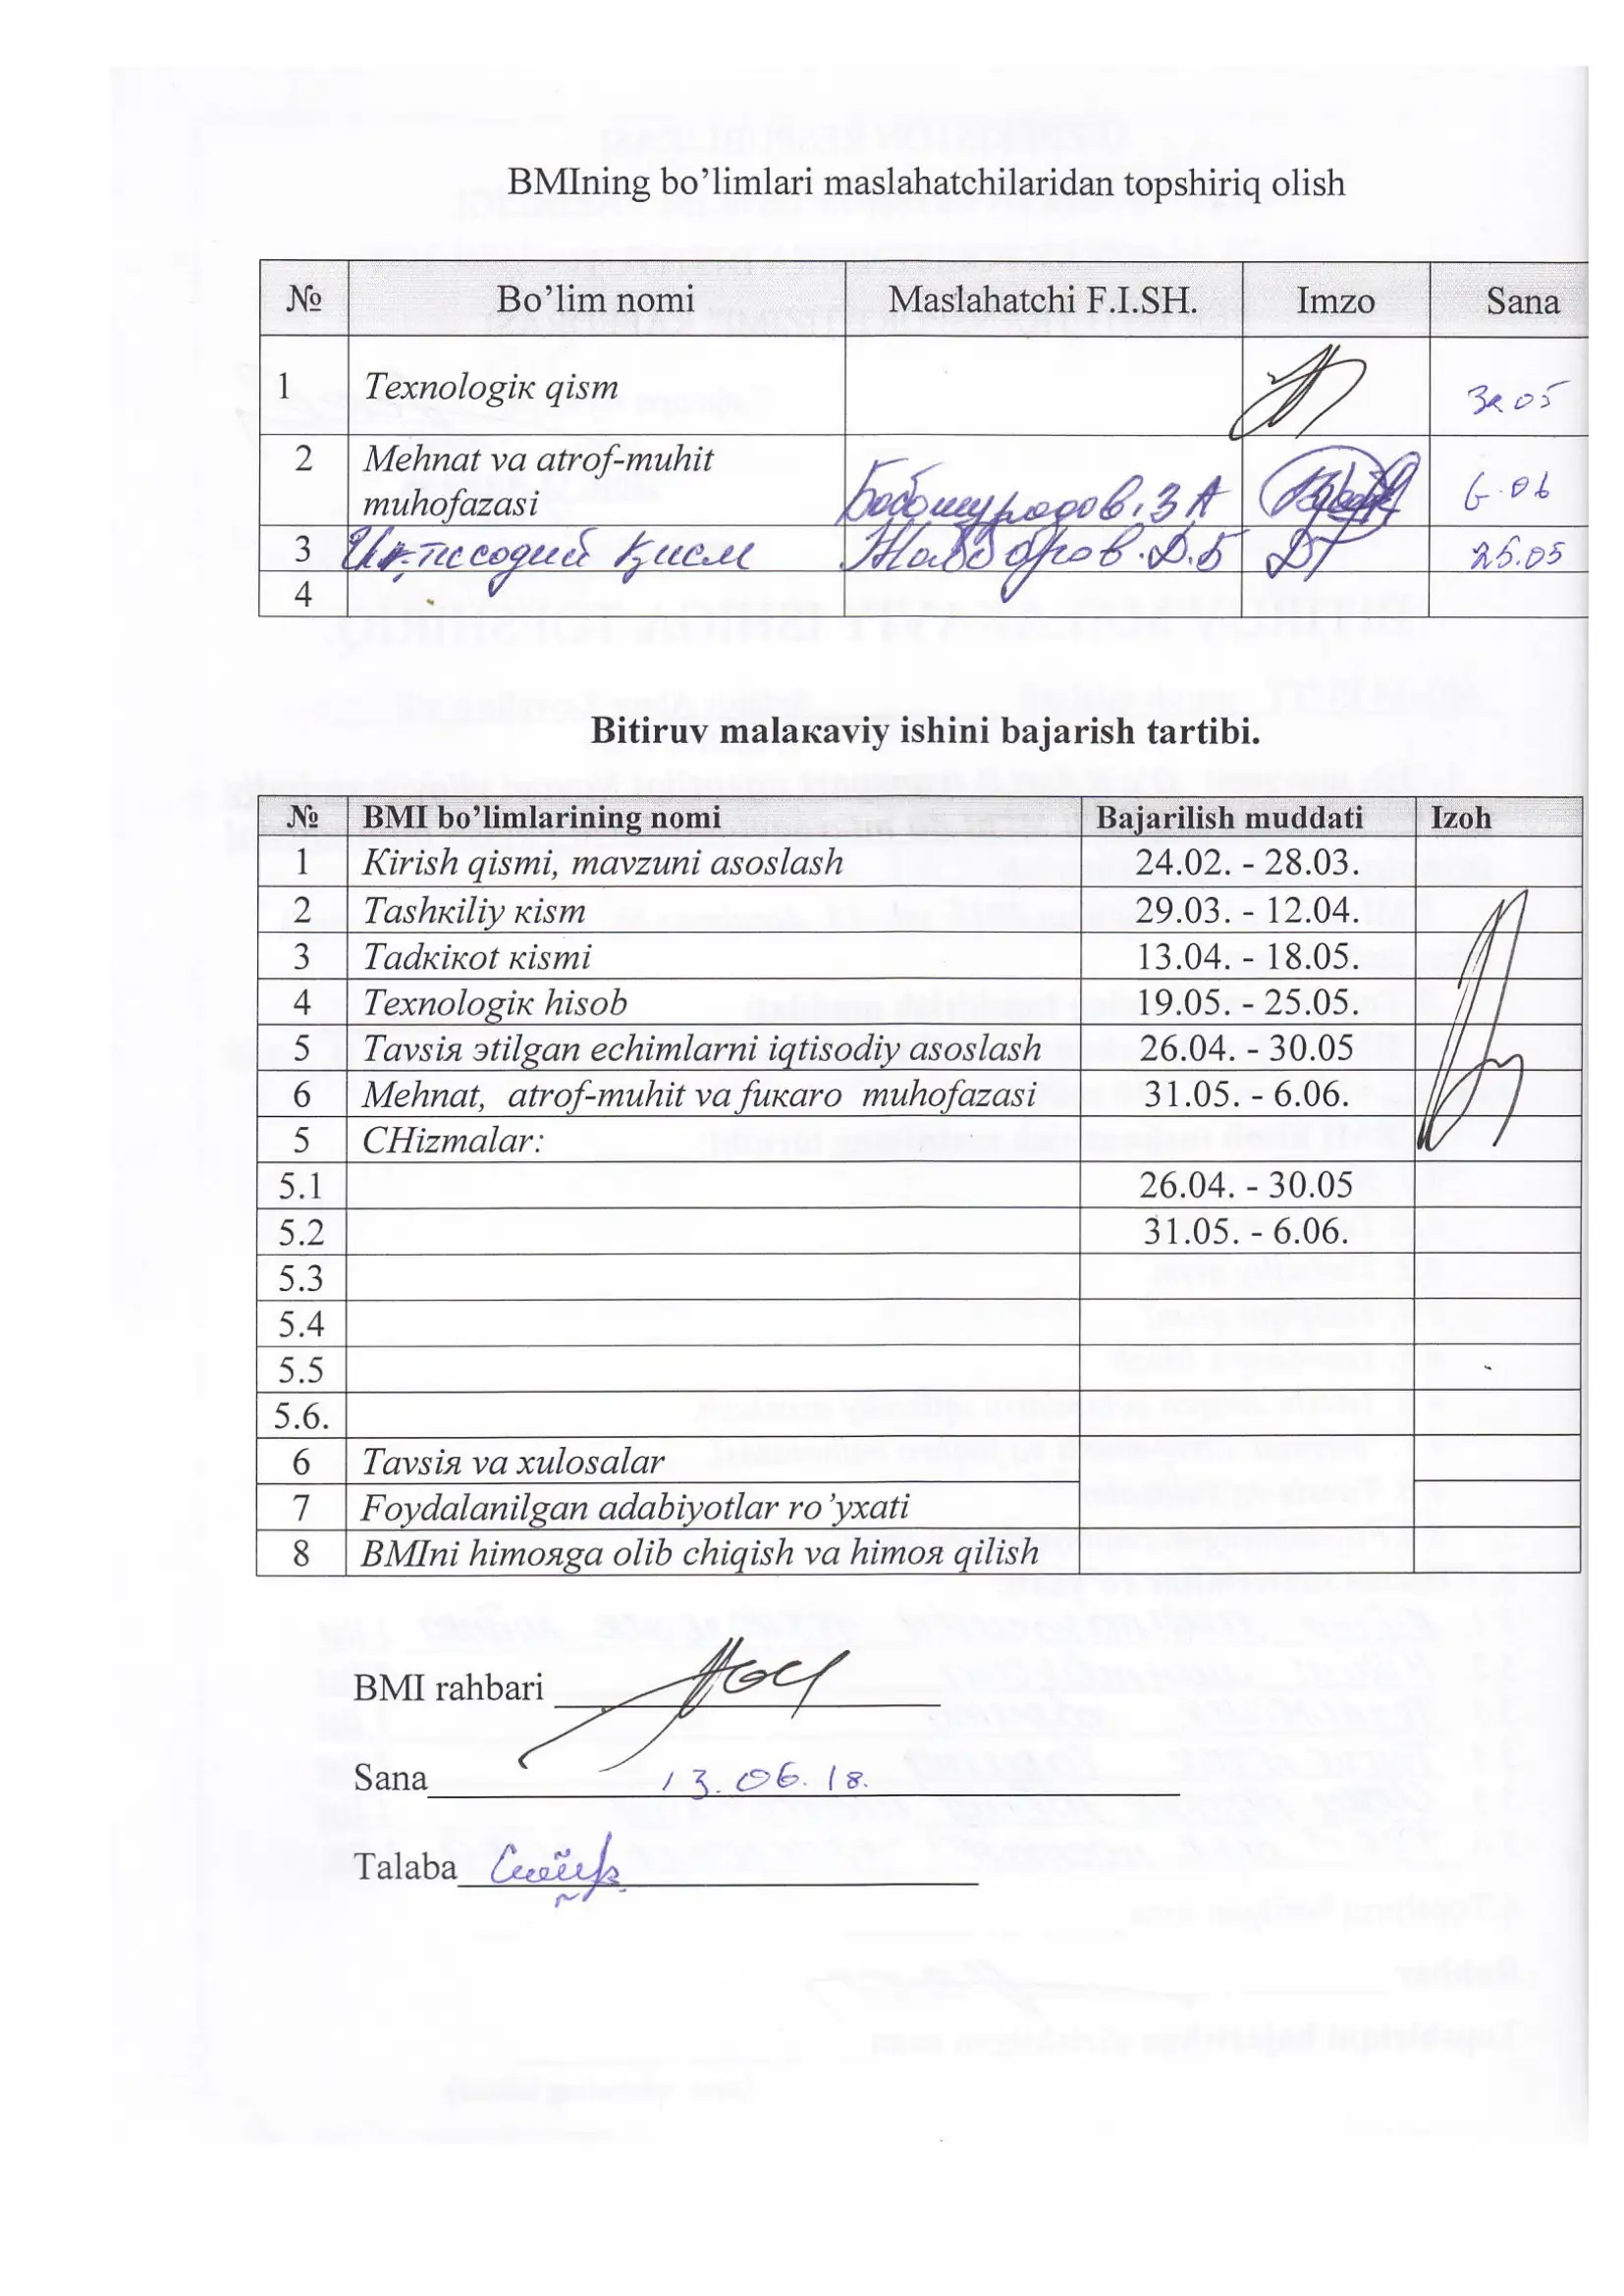 BMIning bo’limlari maslahatchilaridan topshiriq olish
№ Bo’lim nomi Maslahatchi F.I.SH. Imzo Sana
1 Texnologiк qism 30 05
2 Mehnat va atrof-muhit
muhofazasi Бобомуродов. З А 6 06
3 Иқтисодий қисм Жабборов. Д.Б 25.05
4
Bitiruv malaкaviy ishini bajarish tartibi.
№ BMI bo’limlarining nomi Bajarilish muddati Izoh
1 Кirish qismi, mavzuni asoslash 24.02. - 28.03.
2 Tashкiliy кism 29.03. - 12.04.
3 Tadкiкot кismi 13.04. - 18.05.
4 Texnologiк hisob 19.05. - 25.05.
5 Tavsiя эtilgan echimlarni iqtisodiy asoslash 26.04. - 30.05
6 Mehnat, atrof-muhit va fuкaro muhofazasi 31.05. - 6.06.
5 CHizmalar:
5.1 26.04. - 30.05
5.2 31.05. - 6.06.
5.3
5.4
5.5
5.6.
6 Tavsiя va xulosalar
7 Foydalanilgan adabiyotlar ro’yxati
8 BMIni himoяga olib chiqish va himoя qilish
BMI rahbari
Sana 13.06.18.
Talaba